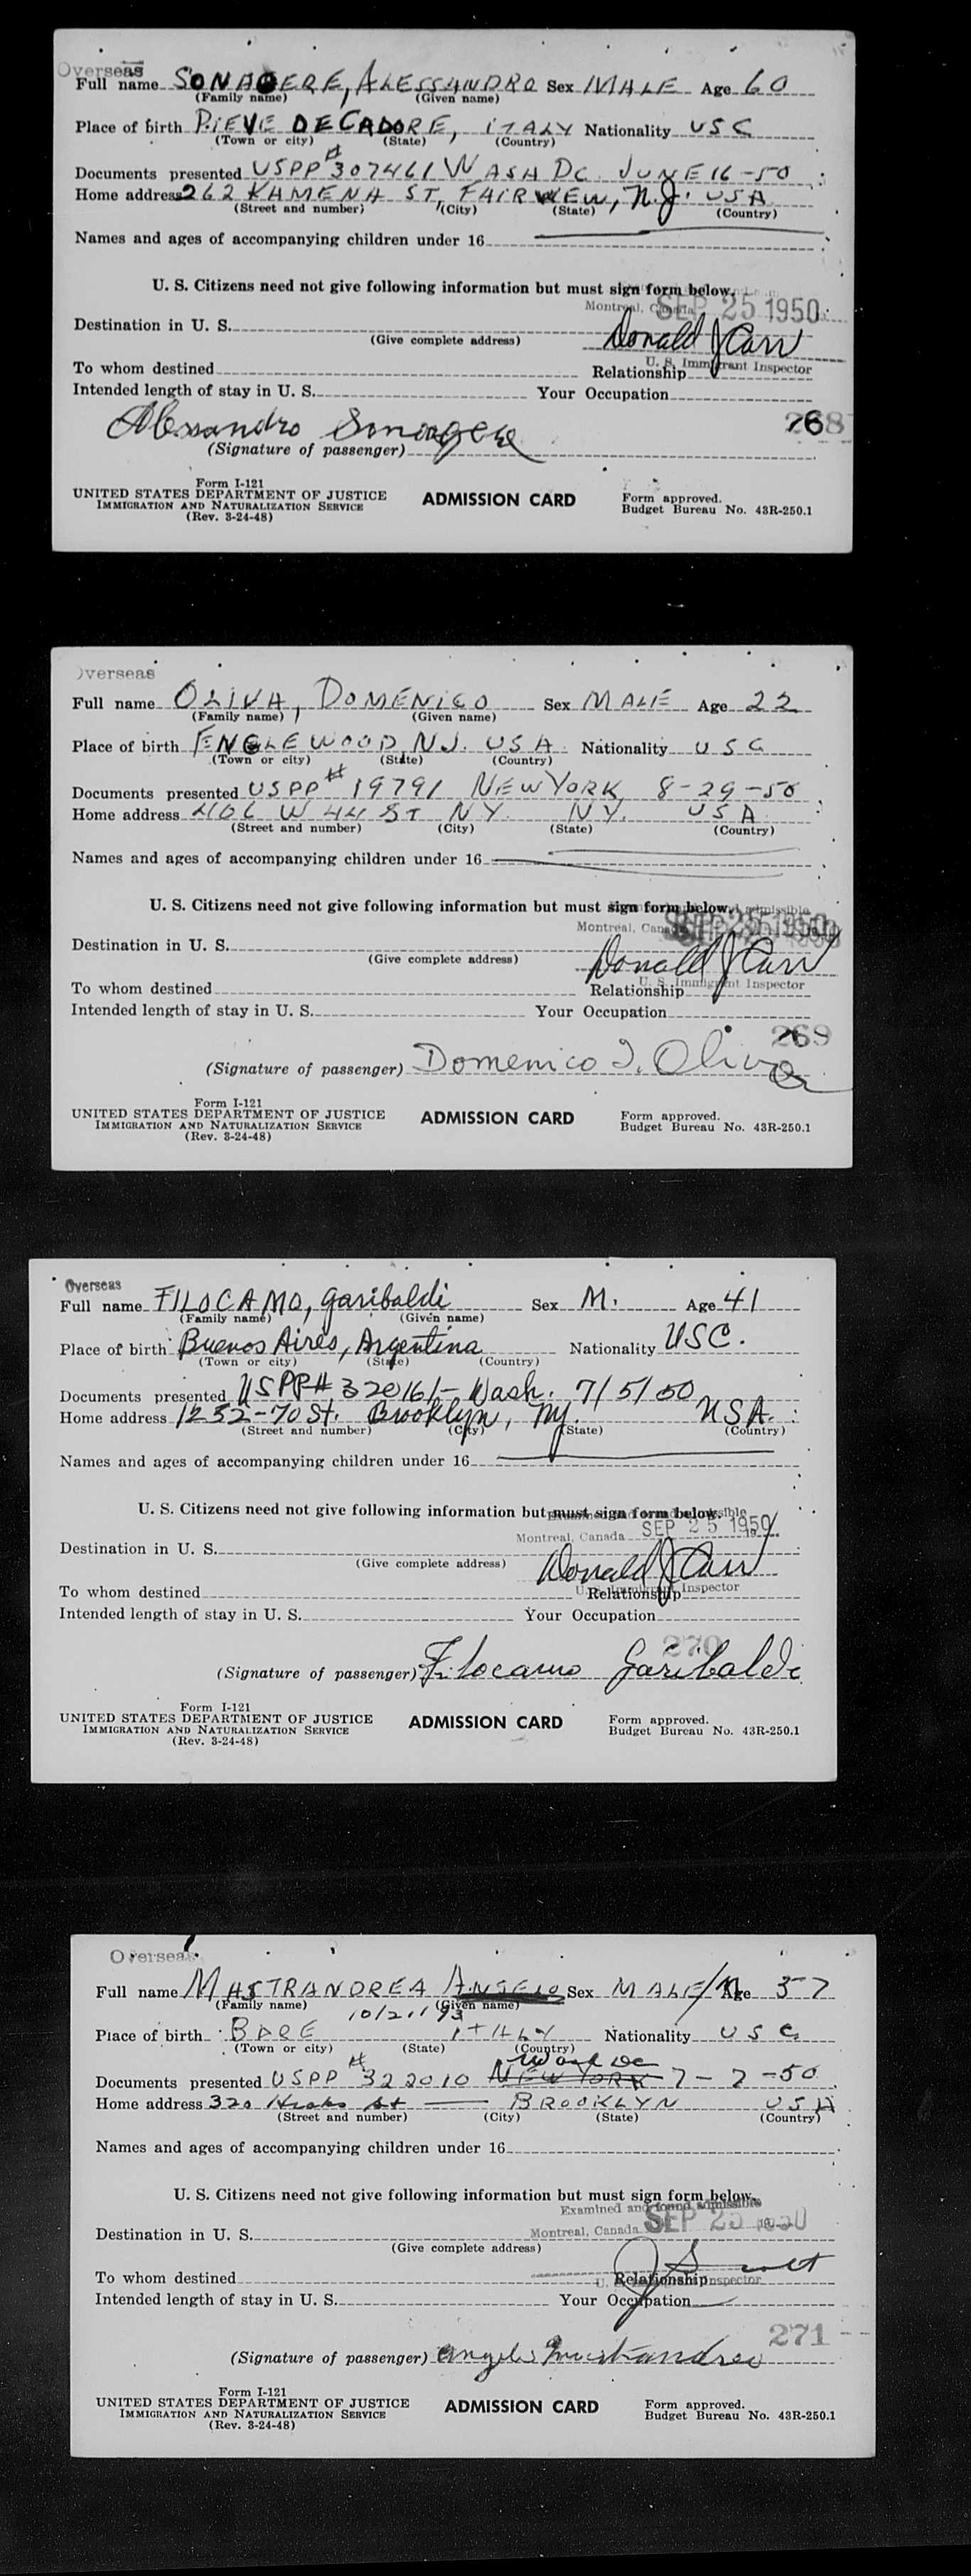 Overseas
Full name SONAGERE, ALESSANDRO Sex MALE Age 60
(Family name) (Given name)
Place of birth PIEVE DECADORE, ITALY Nationality USC
(Town or city) (State) (Country)
Documents presented USPP # 307461 WASH DC JUNE 16-50
Home address 262 KAMENA ST, FAIRVIEW, N.J. USA
(Street and number) (City) (State) (Country)
Names and ages of accompanying children under 16
U. S. Citizens need not give following information but must sign form below.
Montreal, Canada SEP 25 1950
Destination in U. S. Donald J Carr
(Give complete address)
U. S. Immigrant Inspector
To whom destined Relationship
Intended length of stay in U. S. Your Occupation
Alessandro Sonagere 268
(Signature of passenger)
Form I-121
UNITED STATES DEPARTMENT OF JUSTICE ADMISSION CARD Form approved.
IMMIGRATION AND NATURALIZATION SERVICE Budget Bureau No. 43R-250.1
(Rev. 3-24-48)
Overseas
Full name OLIVA, DOMENICO Sex MALE Age 22
(Family name) (Given name)
Place of birth ENGLEWOOD, NJ. USA Nationality USC
(Town or city) (State) (Country)
Documents presented USPP # 19791 NEW YORK 8-29-50
Home address 406 W 44 ST NY. NY. USA
(Street and number) (City) (State) (Country)
Names and ages of accompanying children under 16
U. S. Citizens need not give following information but must sign form below. admissible
Montreal, Canada SEP 25 1950
Destination in U. S. Donald J Carr
(Give complete address)
U. S. Immigrant Inspector
To whom destined Relationship
Intended length of stay in U. S. Your Occupation
269
(Signature of passenger) Domenico I. Oliva
Form I-121
UNITED STATES DEPARTMENT OF JUSTICE ADMISSION CARD Form approved.
IMMIGRATION AND NATURALIZATION SERVICE Budget Bureau No. 43R-250.1
(Rev. 3-24-48)
Overseas
Full name FILOCAMO, Garibaldi Sex M. Age 41
(Family name) (Given name)
Place of birth Buenos Aires, Argentina Nationality USC.
(Town or city) (State) (Country)
Documents presented USPP# 320161- Wash. 7/5/50
Home address 1232-70 St. Brooklyn, NY. USA.
(Street and number) (City) (State) (Country)
Names and ages of accompanying children under 16
U. S. Citizens need not give following information but must sign form below.
Montreal, Canada SEP 25 1950
Destination in U. S. Donald J Carr
(Give complete address)
Inspector
To whom destined Relationship
Intended length of stay in U. S. Your Occupation
270
(Signature of passenger) Filocamo Garibaldi
Form I-121
UNITED STATES DEPARTMENT OF JUSTICE ADMISSION CARD Form approved.
IMMIGRATION AND NATURALIZATION SERVICE Budget Bureau No. 43R-250.1
(Rev. 3-24-48)
Overseas
Full name MASTRANDREA ANGELO Sex MALE/M Age 57
(Family name) (Given name)
Place of birth BARE ITALY Nationality USC
(Town or city) (State) (Country)
Wash DC
Documents presented USPP # 322010 NEW YORK 7-7-50
Home address 320 Hicks St BROOKLYN USA
(Street and number) (City) (State) (Country)
Names and ages of accompanying children under 16
U. S. Citizens need not give following information but must sign form below.
Examined and found admissible
Montreal, Canada SEP 25 1950
Destination in U. S.
(Give complete address)
To whom destined Relationship Inspector
Intended length of stay in U. S. Your Occupation
271
(Signature of passenger) Angelo Mastrandrea
Form I-121
UNITED STATES DEPARTMENT OF JUSTICE ADMISSION CARD Form approved.
IMMIGRATION AND NATURALIZATION SERVICE Budget Bureau No. 43R-250.1
(Rev. 3-24-48)